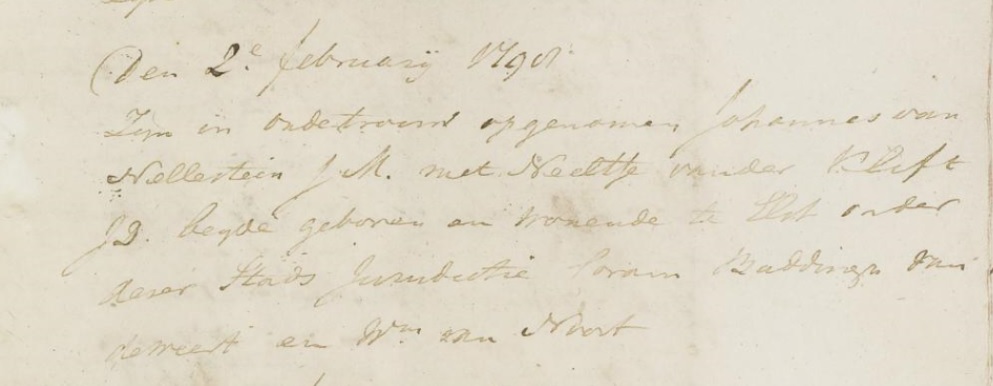 Den 2e. februarij 1798
Zijn in ondertrouw opgenomen Johannes van
Nellestein J.M. met Neeltje vander Klift
J.D. beyde geboren en wonende te Elst onder
deser Stads Jurisdictie Coram Baddinga van
deweert en Wm van Noort